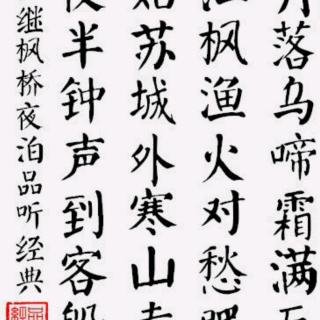 落乌啼霜满
枫渔火对愁
苏城外寒山
半钟声到客
继枫桥夜泊品听经典